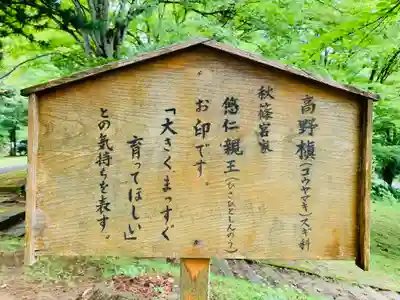 高野槇(コウヤマキ)スギ科
秋篠宮家
悠仁親王(ひさひとしんのう)
お印です。
「大きくまっすぐ
育ってほしい」
との気持ちを表す。